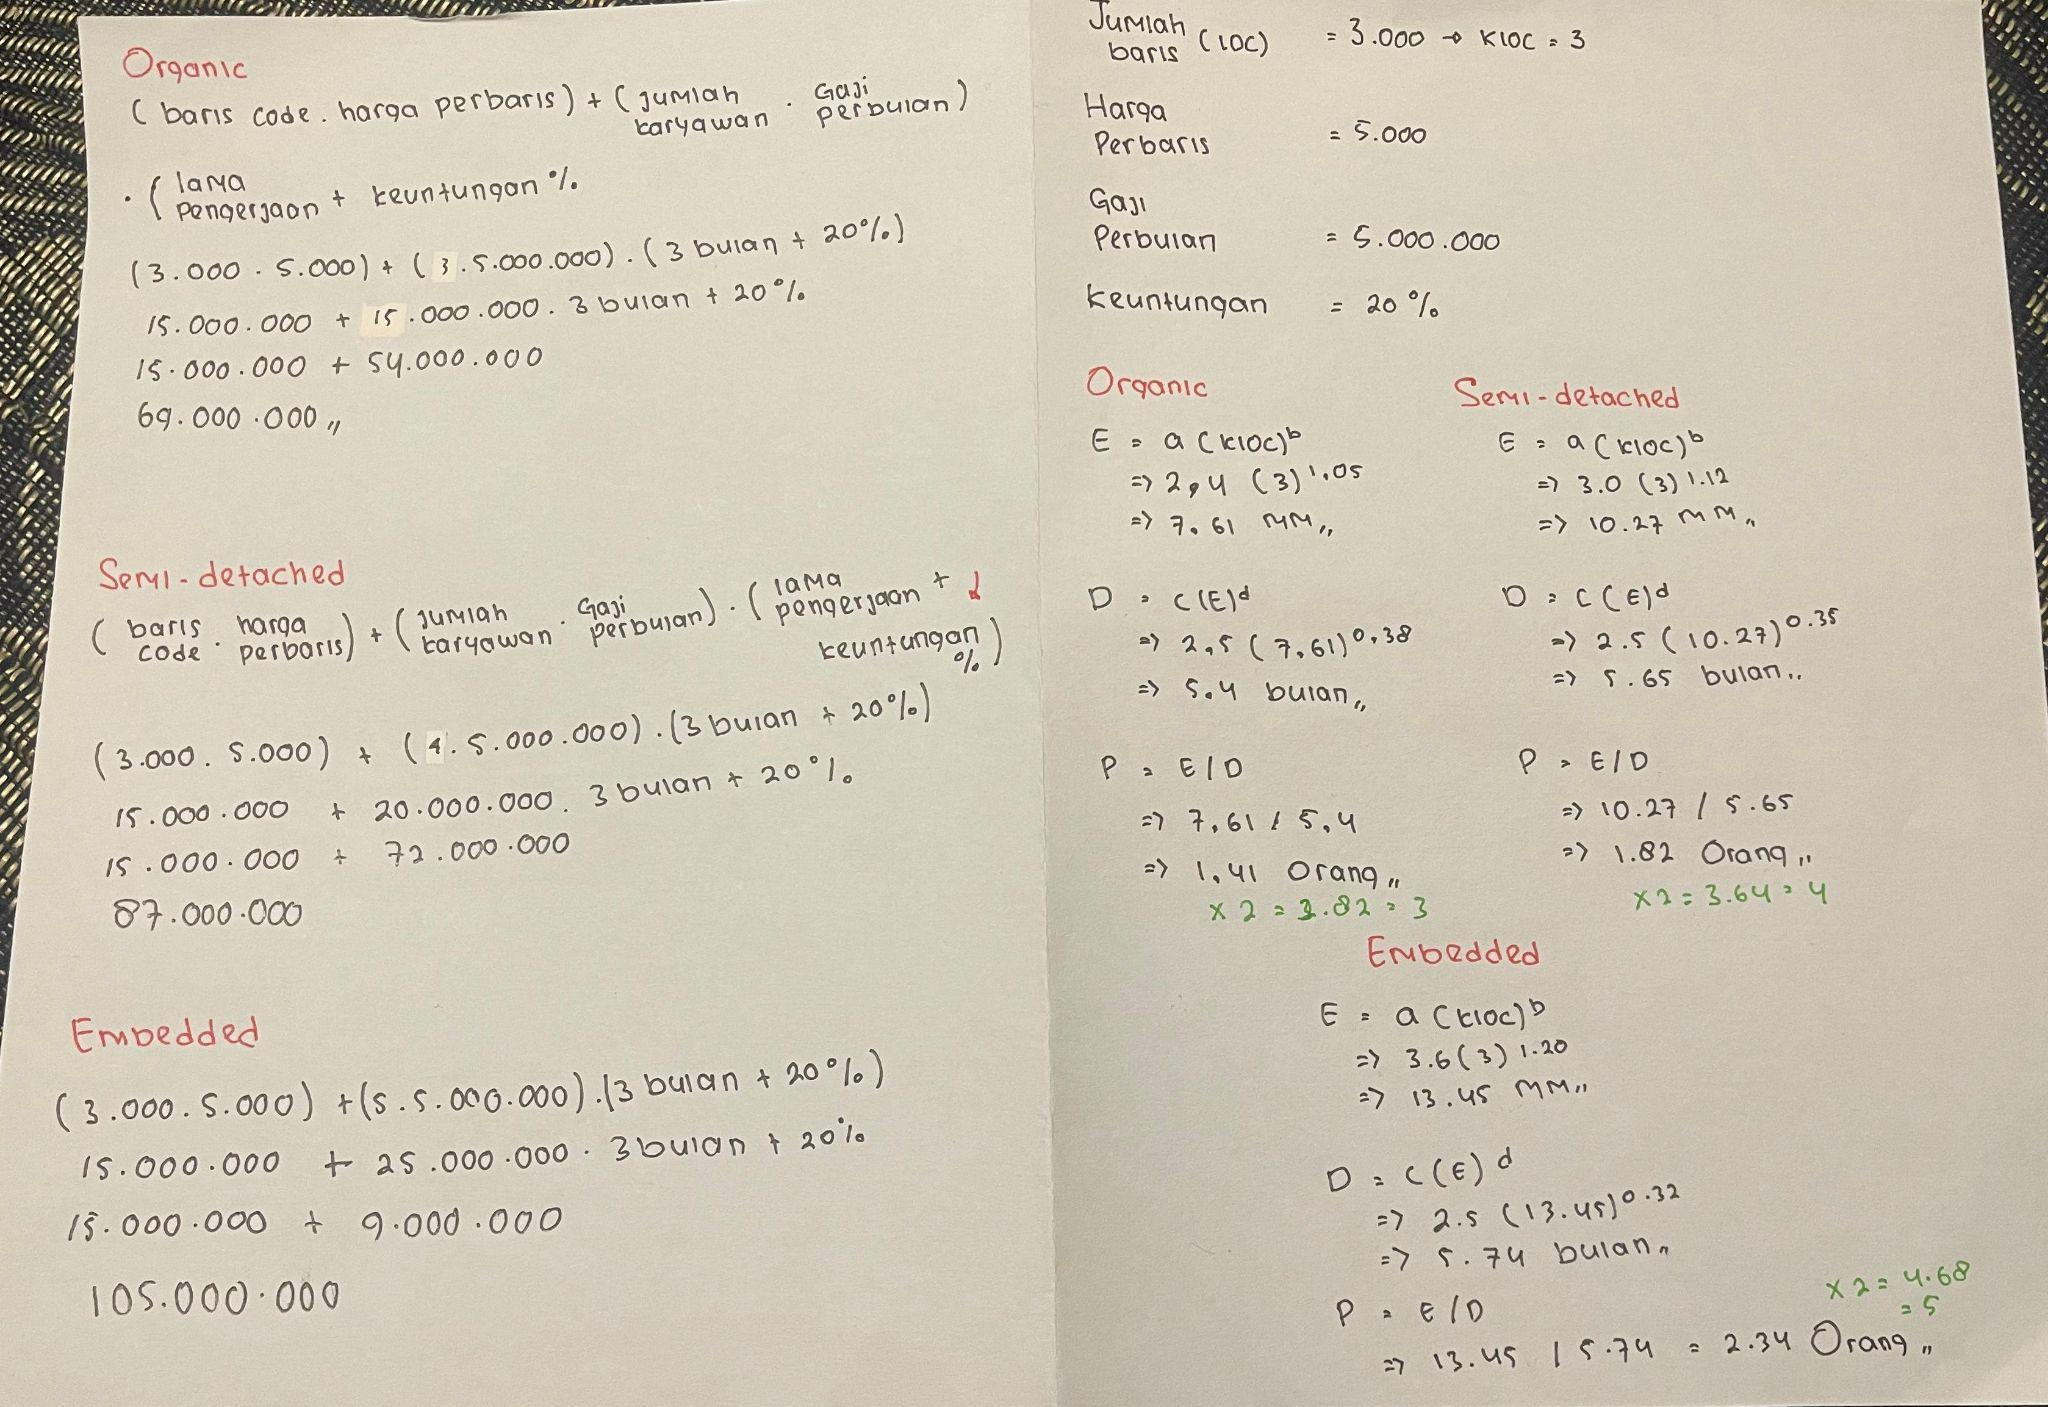 Organic
(baris code . harga perbaris) + (jumlah karyawan . Gaji perbulan)
. (lama pengerjaan + keuntungan %
(3.000 . 5.000) + (3 . 5.000.000) . (3 bulan + 20%)
15.000.000 + 15.000.000 . 3 bulan + 20%
15.000.000 + 54.000.000
69.000.000 ,,
Semi-detached
(baris code . harga perbaris) + (jumlah karyawan . Gaji perbulan) . (lama pengerjaan +
keuntungan %)
(3.000 . 5.000) + (4 . 5.000.000) . (3 bulan + 20%)
15.000.000 + 20.000.000 . 3 bulan + 20%
15.000.000 + 72.000.000
87.000.000
Embedded
(3.000 . 5.000) + (5 . 5.000.000) . (3 bulan + 20%)
15.000.000 + 25.000.000 . 3 bulan + 20%
15.000.000 + 9.000.000
105.000.000
Jumlah baris (LOC) = 3.000 → KLOC = 3
Harga Perbaris = 5.000
Gaji Perbulan = 5.000.000
Keuntungan = 20%
Organic
E = a (KLOC)^b
=> 2,4 (3)^1,05
=> 7.61 MM,,
D = C(E)^d
=> 2,5 (7,61)^0,38
=> 5.4 bulan,,
P = E/D
=> 7,61 / 5,4
=> 1,41 Orang,,
x 2 = 2.82 = 3
Semi-detached
E = a (KLOC)^b
=> 3.0 (3)^1.12
=> 10.27 MM,,
D = C(E)^d
=> 2.5 (10.27)^0.35
=> 5.65 bulan,,
P = E/D
=> 10.27 / 5.65
=> 1.82 Orang,,
x 2 = 3.64 = 4
Embedded
E = a (KLOC)^b
=> 3.6 (3)^1.20
=> 13.45 MM,,
D = C(E)^d
=> 2.5 (13.45)^0.32
=> 5.74 bulan,,
P = E/D
=> 13.45 / 5.74 = 2.34 Orang,,
x 2 = 4.68
= 5